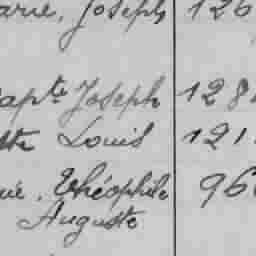 arie, Joseph 126
apte Joseph 128
tte Louis 121
rie, Théophile 96
Auguste